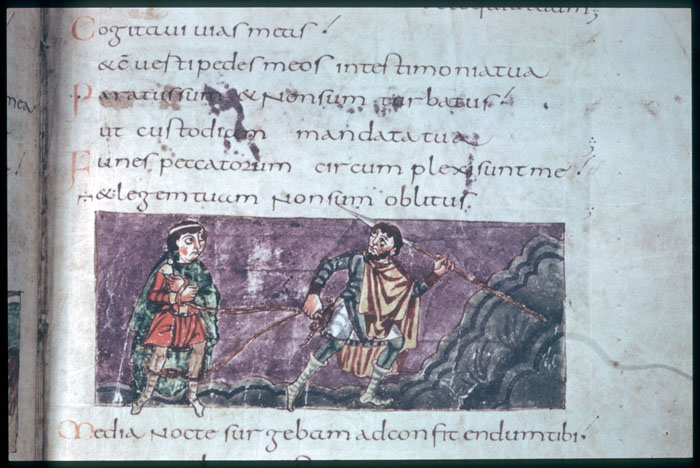 Cogitaui uias meas
& c̄uerti pedes meos in testimonia tua
Paratus sum & non sum turbatus
ut custodiam mandata tua
Funes peccatorum circumplexi sunt me
& legem tuam non sum oblitus
Media nocte surgebam ad confitendum tibi